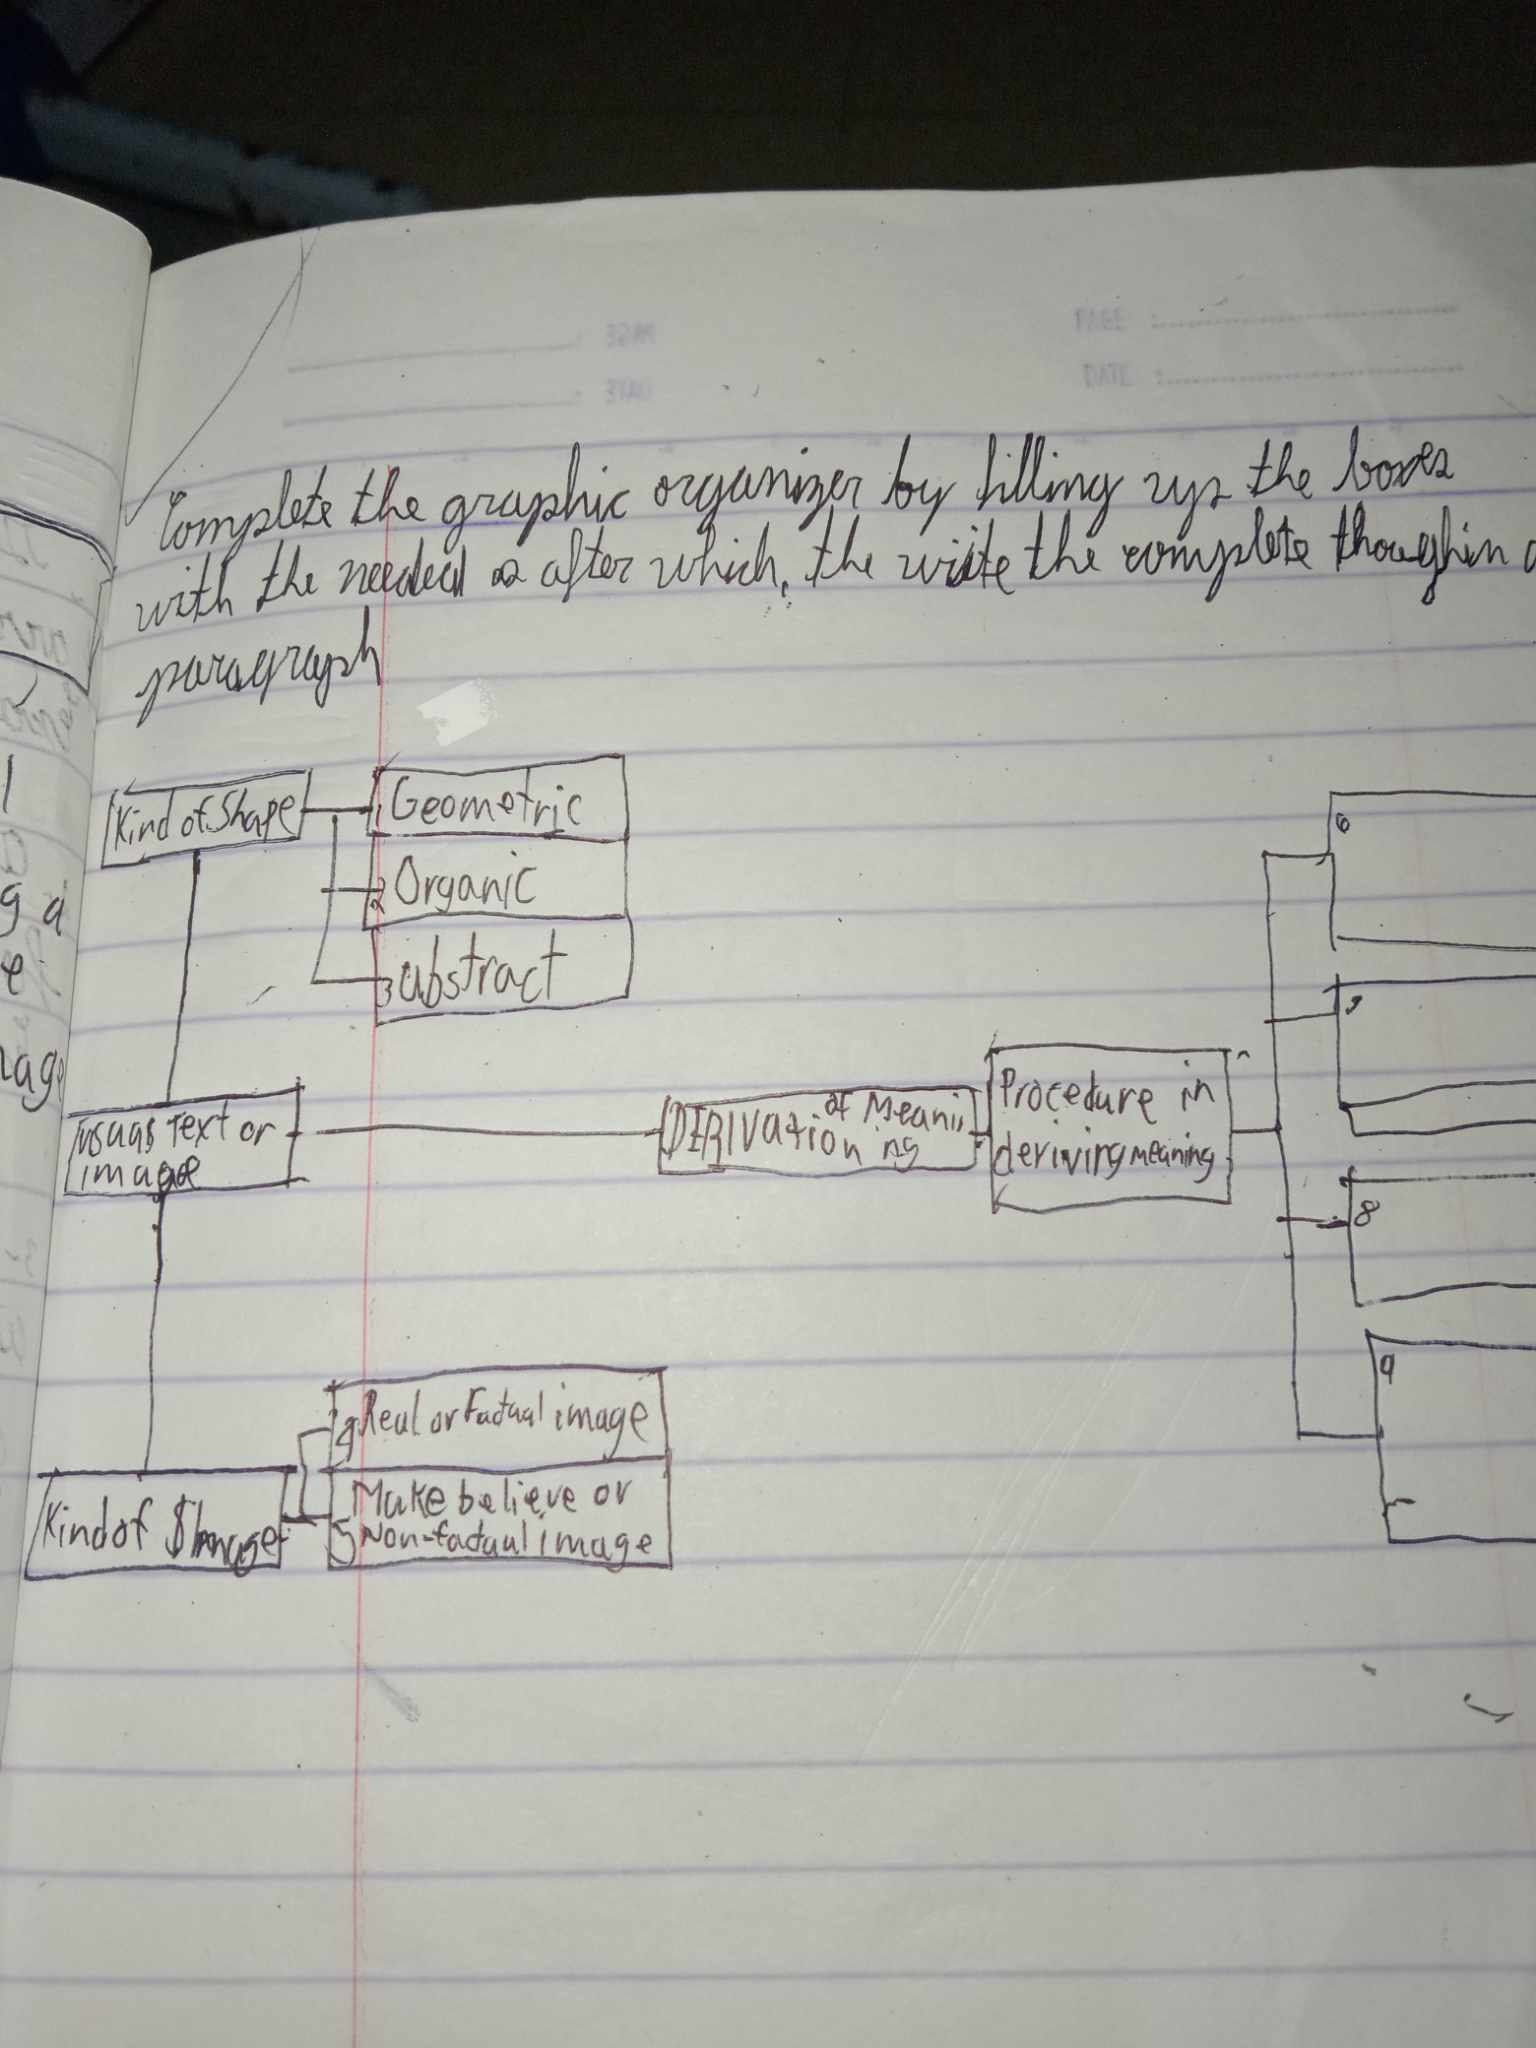 Complete the graphic organizer by filling up the boxes
with the needed as after which, the write the complete though in a
paragraph
Kind of Shape
1 Geometric
2 Organic
3 abstract
text or
image
DERIVation of Meani
ng
Procedure in
deriving meaning
6
7
8
9
4 Real or Factual image
Kind of Image
5 Make believe or
Non-factual image
PAGE
DATE
PAGE :
DATE :
g a
e